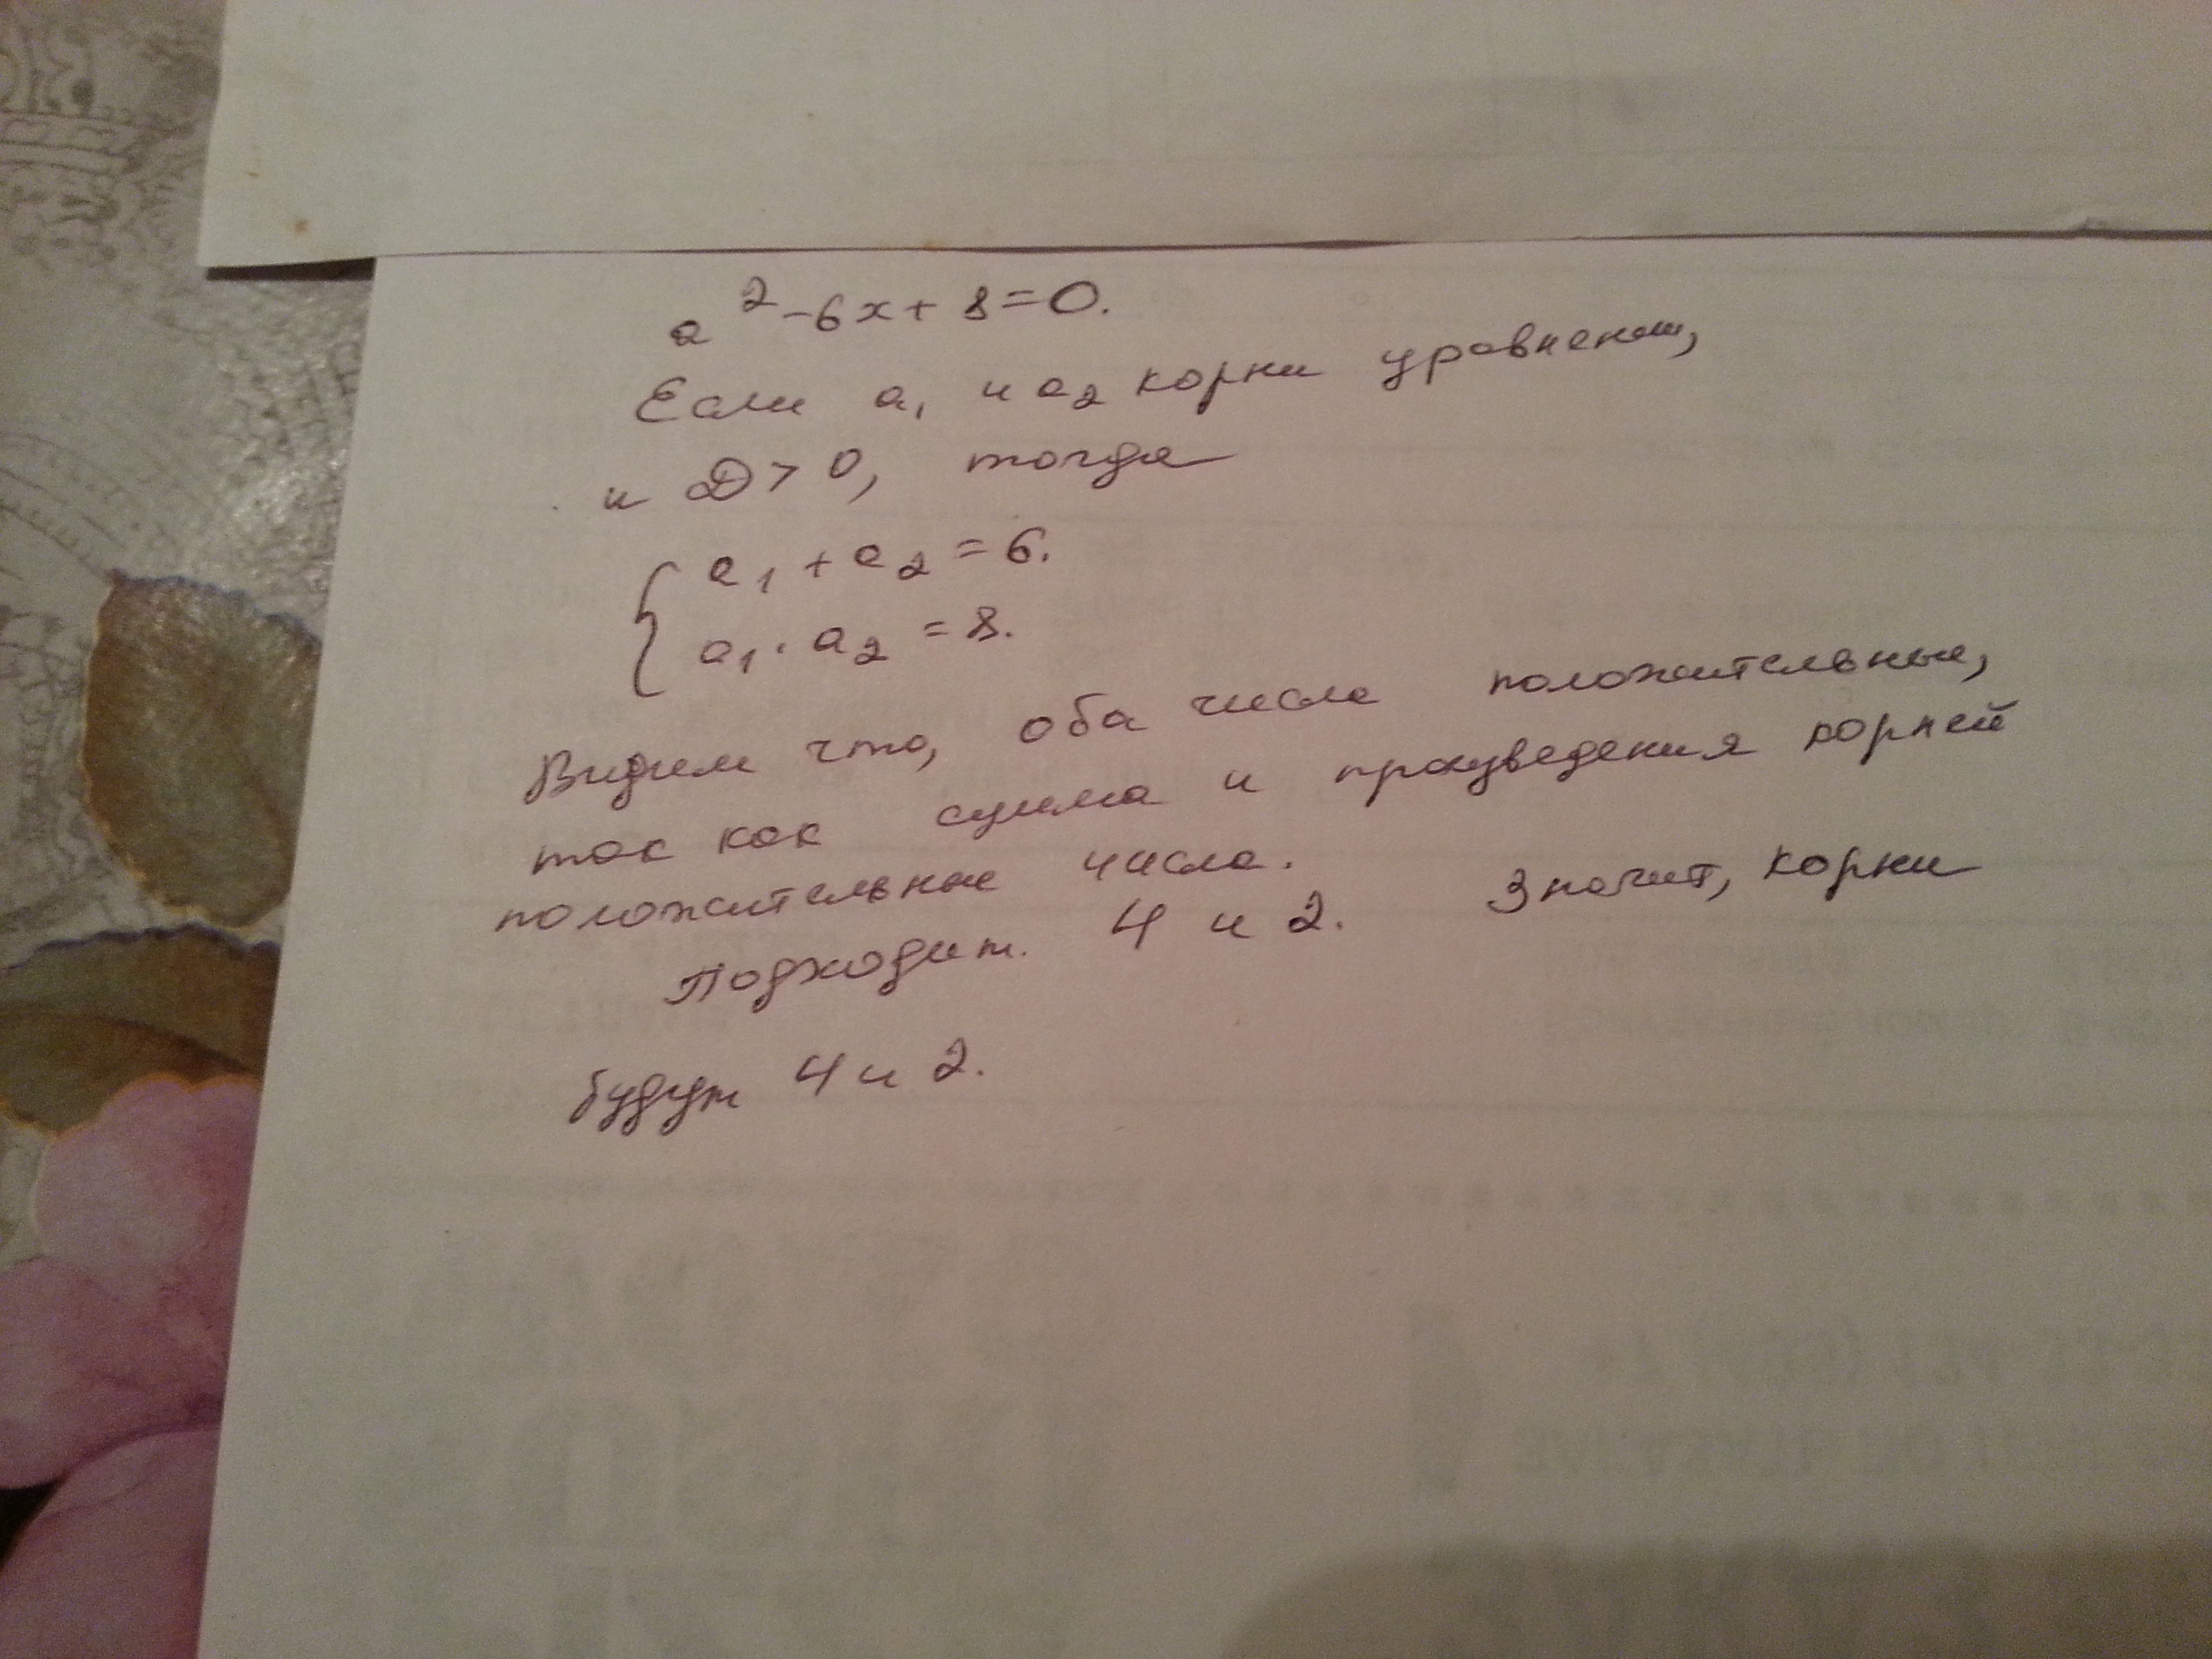 a² - 6x + 8 = 0.
Если a₁ и a₂ корни уравнения,
и D > 0, тогда
a₁ + a₂ = 6.
a₁ · a₂ = 8.
Видим что, оба числа положительные,
так как сумма и произведения корней
положительные числа.
Подходит. 4 и 2. Значит, корни
будут 4 и 2.